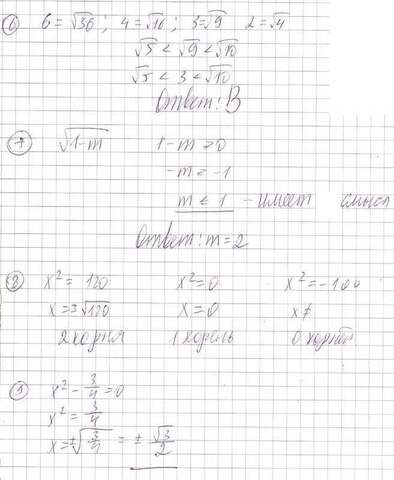 6) 6 = √36 ; 4 = √16 ; 3 = √9 2 = √4
√5 < √9 < √10
√5 < 3 < √10
Ответ: В
7) √1-m 1 - m ≥ 0
m ≤ 1 - имеет смысл
Ответ: m = 2
x² = 120 x² = 0 x² = -100
x = ±√120 x = 0 x ≠
2 корня 1 корень 0 корней
x² - 3/4 = 0
x² = 3/4
x = ±√3/4 = ± √3/2